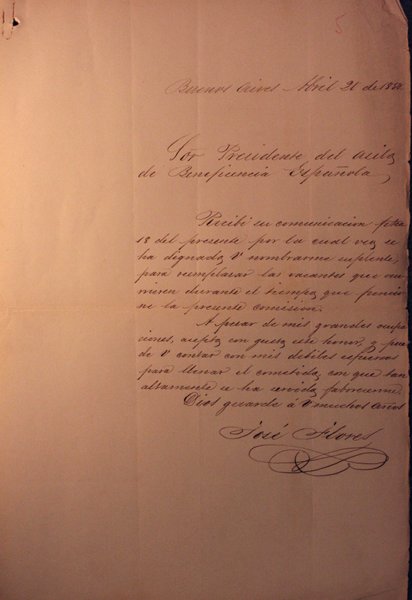 Buenos Aires Abril 20 de 18
Sor Presidente del Asilo
de Beneficencia Española
Recibí su comunicacion fecha
18 del presente por la cual veo se
ha dignado V nombrarme suplente
para remplazar las vacantes que ocu-
rrieren durante el tiempo que funcio-
ne la presente comision.
A pesar de mis grandes ocupa-
ciones, acepto con gusto este honor, y pue-
de V contar con mis debiles esfuerzos
para llenar el cometido con que tan
altamente se ha servido favorecerme.
Dios guarde á V muchos años
José Flores